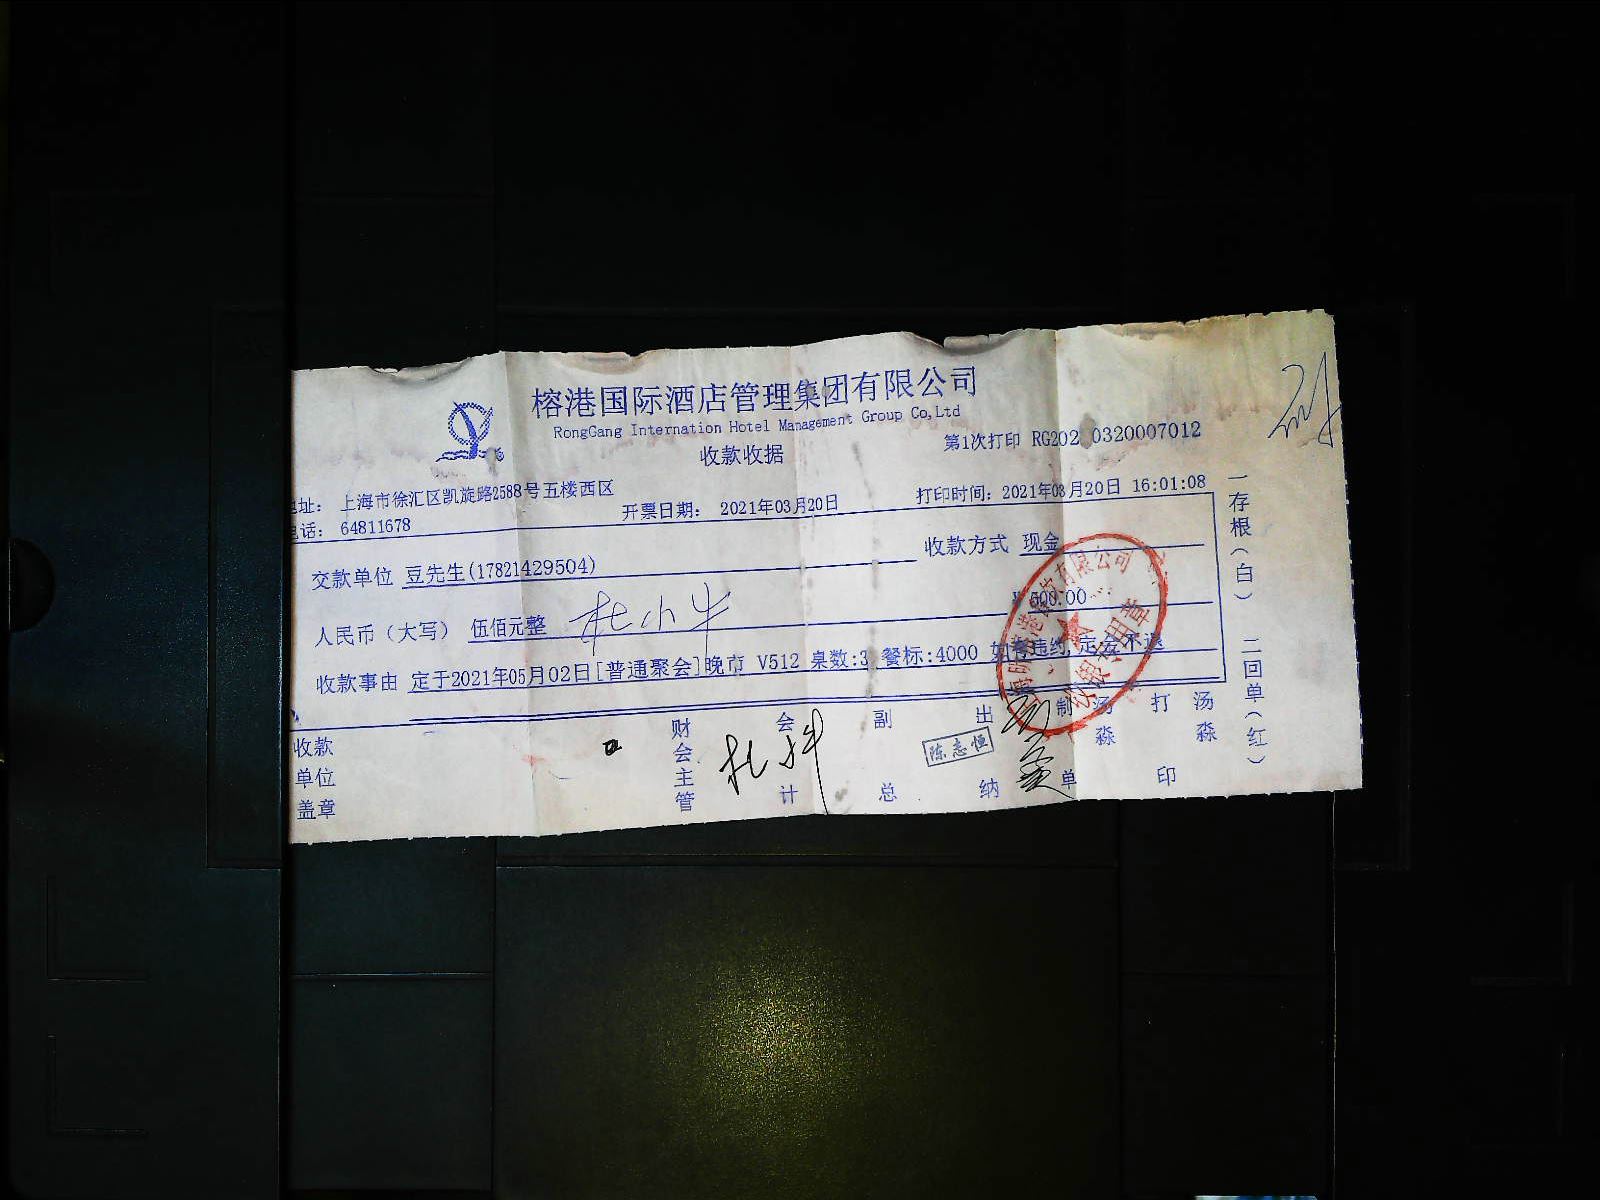 榕港国际酒店管理集团有限公司
RongGang Internation Hotel Management Group Co,Ltd
收款收据
第1次打印 RG202 0320007012
址： 上海市徐汇区凯旋路2588号五楼西区
话： 64811678
开票日期： 2021年03月20日
打印时间：2021年03月20日 16:01:08
交款单位 豆先生(17821429504)
收款方式 现金
人民币（大写） 伍佰元整 杜小牛
500.00
收款事由 定于2021年05月02日[普通聚会]晚市 V512 桌数:3 餐标:4000 如有违约,定金不退
收款单位盖章
财会主管
会计
副总
出纳
陈志恒
制单
汤淼
打印
汤淼
一存根（白） 二回单（红）
有限公司
收银专用章